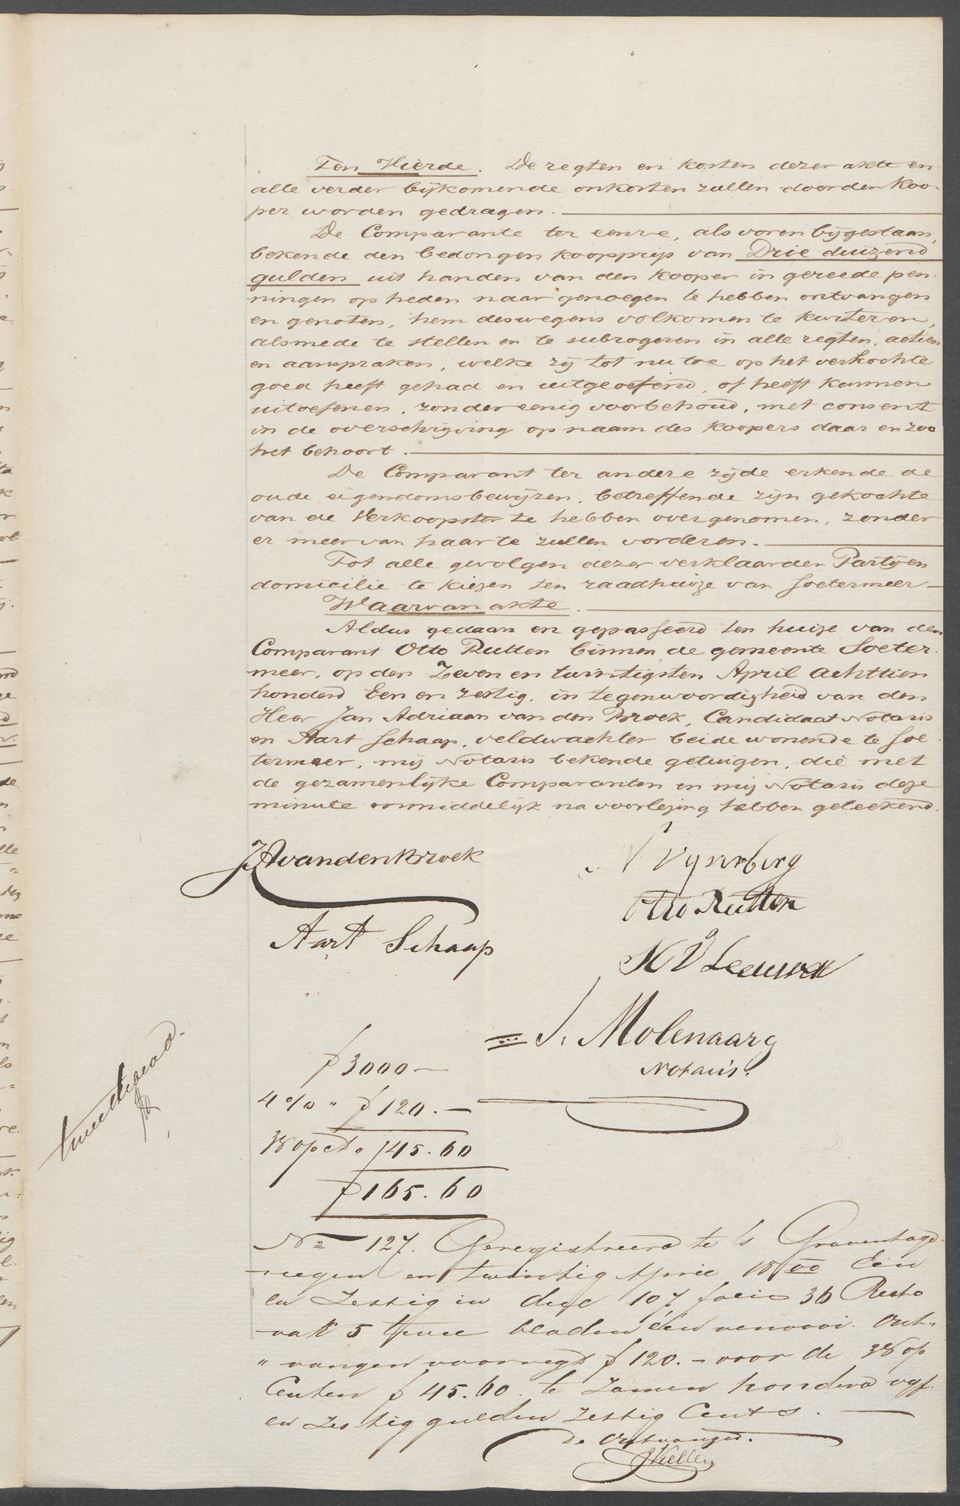 Ten Vierde. De regten en kosten dezer akte en
alle verder bijkomende onkosten zullen door den koo-
per worden gedragen.
De Comparante ter eenre, als voren bijgestaan,
bekende den bedongen koopprijs van Drie duizend
gulden uit handen van den kooper in gereede pen-
ningen op heden naar genoegen te hebben ontvangen
en genoten, hem deswegens volkomen te kwiteren,
alsmede te stellen en te subrogeren in alle regten, actien
en aanspraken, welke zij tot nu toe op het verkochte
goed heeft gehad en uitgeoefend, of heeft kunnen
uitoefenen, zonder eenig voorbehoud, met consent
in de overschrijving op naam des koopers daar en zoo
het behoort.
De Comparant ter andere zijde erkende de
oude eigendomsbewijzen, betreffende zijn gekochte
van de Verkoopster te hebben overgenomen, zonder
er meer van haar te zullen vorderen.
Tot alle gevolgen dezer verklaarden Partijen
domicilie te kiezen ten raadhuize van Soetermeer
Waarvan akte.
Aldus gedaan en gepasseerd ten huize van den
Comparant Otto Rutten binnen de gemeente Soeter-
meer, op den Zeven en twintigsten April achttien
honderd Een en zestig, in tegenwoordigheid van den
Heer Jan Adriaan van den Broek, Candidaat Notaris
en Aart Schaap, veldwachter beide wonende te Soe-
termeer, mij Notaris bekende getuigen, die met
de gezamenlijke Comparanten en mij Notaris deze
minute onmiddelijk na voorlezing hebben geteekend.
JA van den Broek
Vijverberg
Otto Rutten
Aart Schaap
K V Leeuwen
J. Molenaar
Notaris.
tweeduizend
ƒ 3000 –
4 % " ƒ 120. –
38 opct " 45.60
ƒ 165.60
No 127. Geregistreerd te 's Gravenhage
negen en twintig April 1800 Een
en Zestig in deel 107 folio 36 Recto
vak 5 twee bladen één renvooi. Ont-
vangen voor regt ƒ 120. – voor de 38 op
Centen ƒ 45.60. te zamen honderd vijf
en zestig gulden zestig Cents.
De Ontvanger.